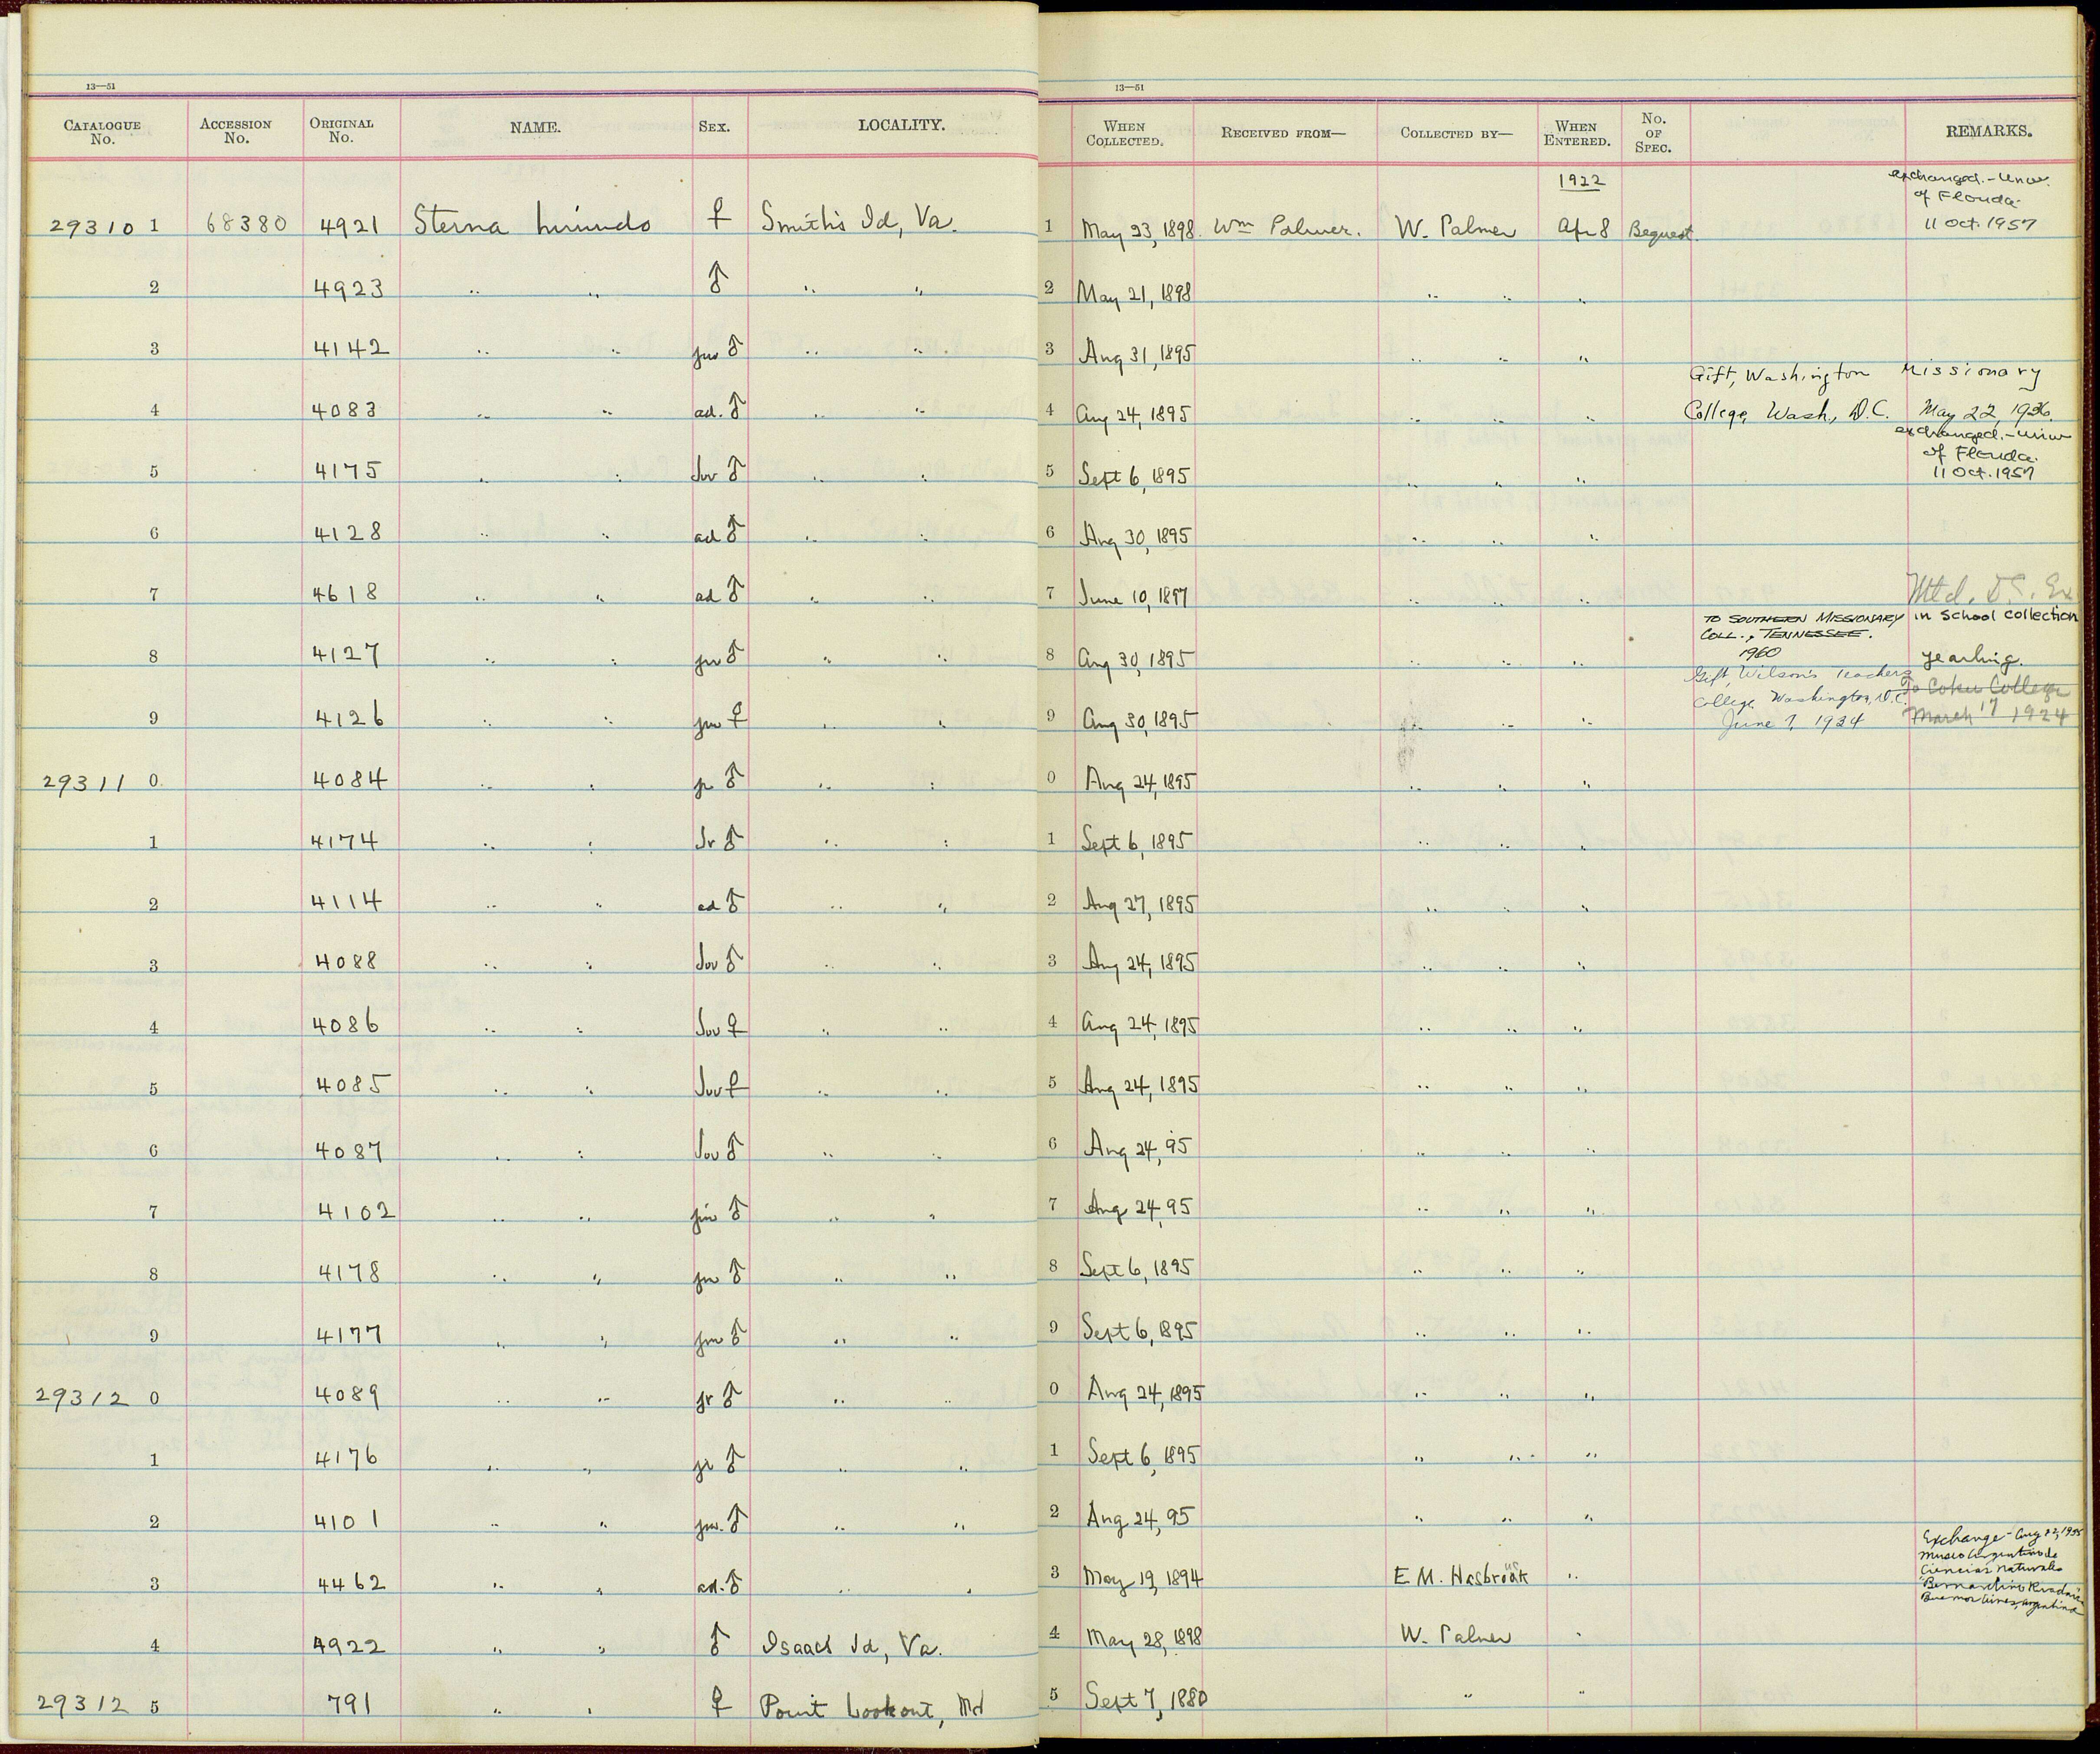 13—51
13—51
CATALOGUE No. ACCESSION No. ORIGINAL No. NAME. SEX. LOCALITY. WHEN COLLECTED. RECEIVED FROM— COLLECTED BY— WHEN ENTERED. No. OF SPEC. REMARKS.
1922
exchanged.-Univ.
of Florida.
29310 1 68380 4921 Sterna hirundo ♀ Smith's Id, Va. 1 May 23, 1898. Wm Palmer. W. Palmer Apr 8 Bequest. 11 Oct. 1957
2 4923 " " ♂ " " 2 May 21, 1898 " " "
3 4142 " " juv ♂ " " 3 Aug 31, 1895 " " "
Gift, Washington Missionary
4 4083 " " ad. ♂ " " 4 Aug 24, 1895 " " " College, Wash., D.C. May 22, 1936.
exchanged.-Univ
of Florida.
5 4175 " " Juv ♂ " " 5 Sept 6, 1895 " " " 11 Oct. 1957
6 4128 " " ad ♂ " " 6 Aug 30, 1895 " " "
7 4618 " " ad ♂ " " 7 June 10, 1897 " " " Mtd. D.S. Ex
TO SOUTHERN MISSIONARY in School collection
COLL., TENNESSEE.
8 4127 " " juv ♂ " " 8 Aug 30, 1895 " " " 1960 yearling.
Gift, Wilson's Teachers
College, Washington, D.C. To Coker College
9 4126 " " juv ♀ " " 9 Aug 30, 1895 " " " June 7, 1934 March 17 1924
29311 0 4084 " " jr ♂ " " 0 Aug 24, 1895 " " "
1 4174 " " Jr ♂ " " 1 Sept 6, 1895 " " "
2 4114 " " ad ♂ " " 2 Aug 27, 1895 " " "
3 4088 " " Juv ♂ " " 3 Aug 24, 1895 " " "
4 4086 " " Juv ♀ " " 4 Aug 24, 1895 " " "
5 4085 " " Juv ♀ " " 5 Aug 24, 1895 " " "
6 4087 " " Juv ♂ " " 6 Aug 24, 95 " " "
7 4102 " " juv ♂ " " 7 Aug 24, 95 " " "
8 4178 " " juv ♂ " " 8 Sept 6, 1895 " " "
9 4177 " " juv ♂ " " 9 Sept 6, 1895 " " "
29312 0 4089 " " jr ♂ " " 0 Aug 24, 1895 " " "
1 4176 " " jr ♂ " " 1 Sept 6, 1895 " " "
2 4101 " " juv. ♂ " " 2 Aug 24, 95 " " "
Exchange - Aug 22, 1935
Museo Argentino de
3 4462 " " ad. ♂ " " 3 May 19, 1894 E M. Hasbrouk " Ciencias Naturales
"Bernardino Rivadavia"
Buenos Aires, Argentina
4 4922 " " ♂ Isaacs Id, Va. 4 May 28, 1898 W. Palmer "
29312 5 791 " " ♀ Point Lookout, Md 5 Sept 7, 1880 " "